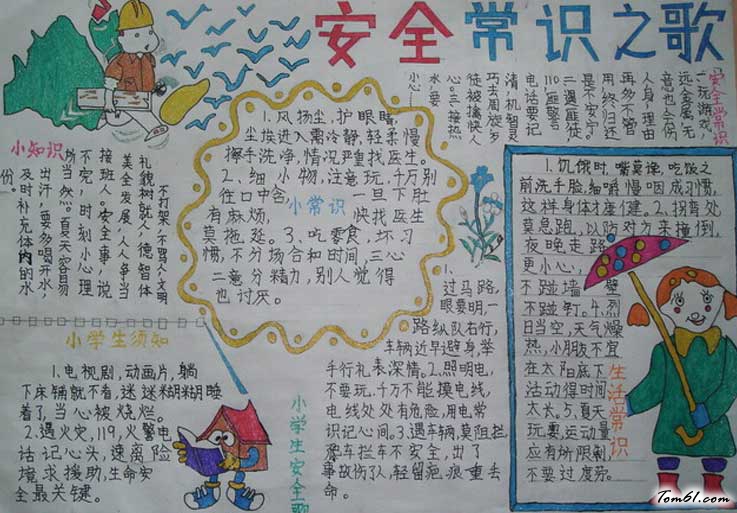 安全常识之歌
安全常识
一.玩游戏,
远金属,无
意也会伤
人身,理由
再多不管
用,终归还
是不安宁。
二.遇匪徒,
110匪警
电话要记
清,机智灵
巧去周旋,歹
徒被擒快人
心。三.接热
水,要
小心
小知识
不打架,不骂人,文明
礼貌树就人,德智体
美全发展,人人争当
接班人。安全事,说
不完,时刻小心理
所当然。夏天容易
出汗,要多喝开水,
及时补充体内的水
份。
1.风扬尘,护眼睛,
尘埃进入需冷静,轻柔慢
擦手洗净,情况严重找医生。
2、细小物,注意玩,千万别
往口中含 一旦下肚
有麻烦, 快找医生
莫拖延。3、吃零食,坏习
惯,不分场合和时间,三心
二意分精力,别人觉得
也讨厌。
小常识
1.饥饿时,嘴莫馋,吃饭之
前洗手脸,细嚼慢咽成习惯,
这样身体才康健。2、拐弯处
莫急跑,以防对方来撞倒,
夜晚走路
更小心,
不碰墙壁
不碰钉。4.烈
日当空,天气燥
热,小朋友不宜
在太阳底下
活动得时间
太长。5、夏天
玩耍,运动量
应有所限制
不要过度劳。
生活常识
小学生须知
1.电视剧,动画片,躺
下床铺就不看,迷迷糊糊睡
着了,当心被烧烂。
2.遇火灾,119,火警电
话记心头,速离险
境求援助,生命安
全最关键。
小学生安全歌
1.
过马路,
眼要明,一
路纵队右行,
车辆近早避身,举
手行礼表深情。2.照明电,
不要玩,千万不能摸电线,
电线处处有危险,用电常
识记心间。3.遇车辆,莫阻拦,
爬车拦车不安全,出了
事故伤了人,轻留疤痕重丢
命。
Tom61.com